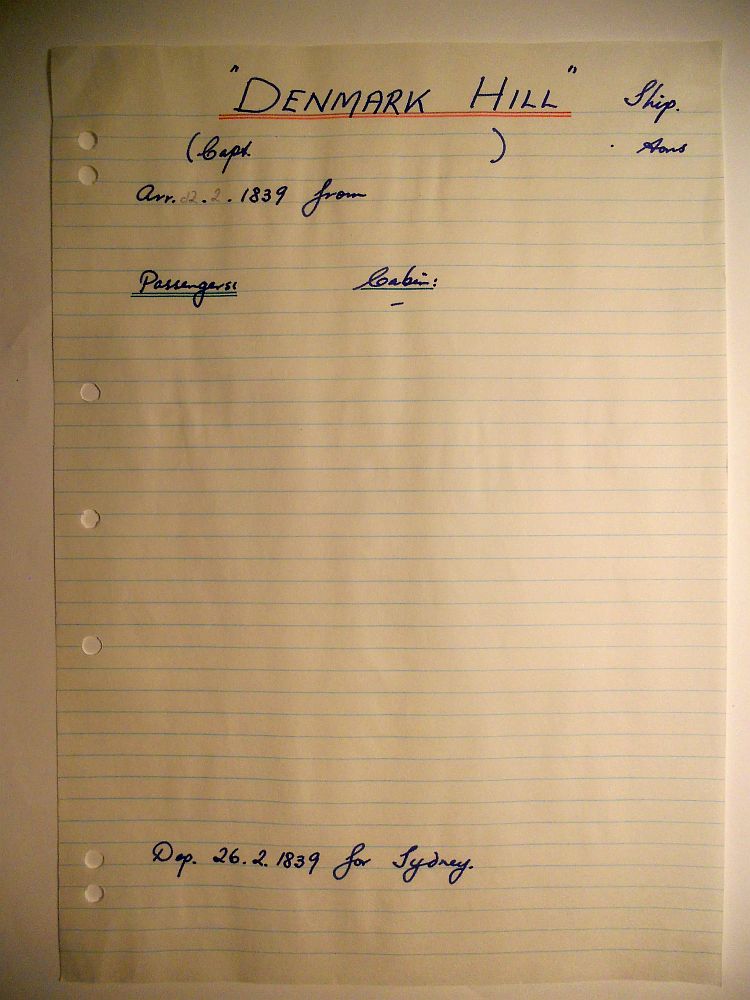 "DENMARK HILL" Ship.
(Capt. ) . tons
Arr. 2. 1839 from
Passengers: Cabin:
–
Dep. 26. 2. 1839 for Sydney.